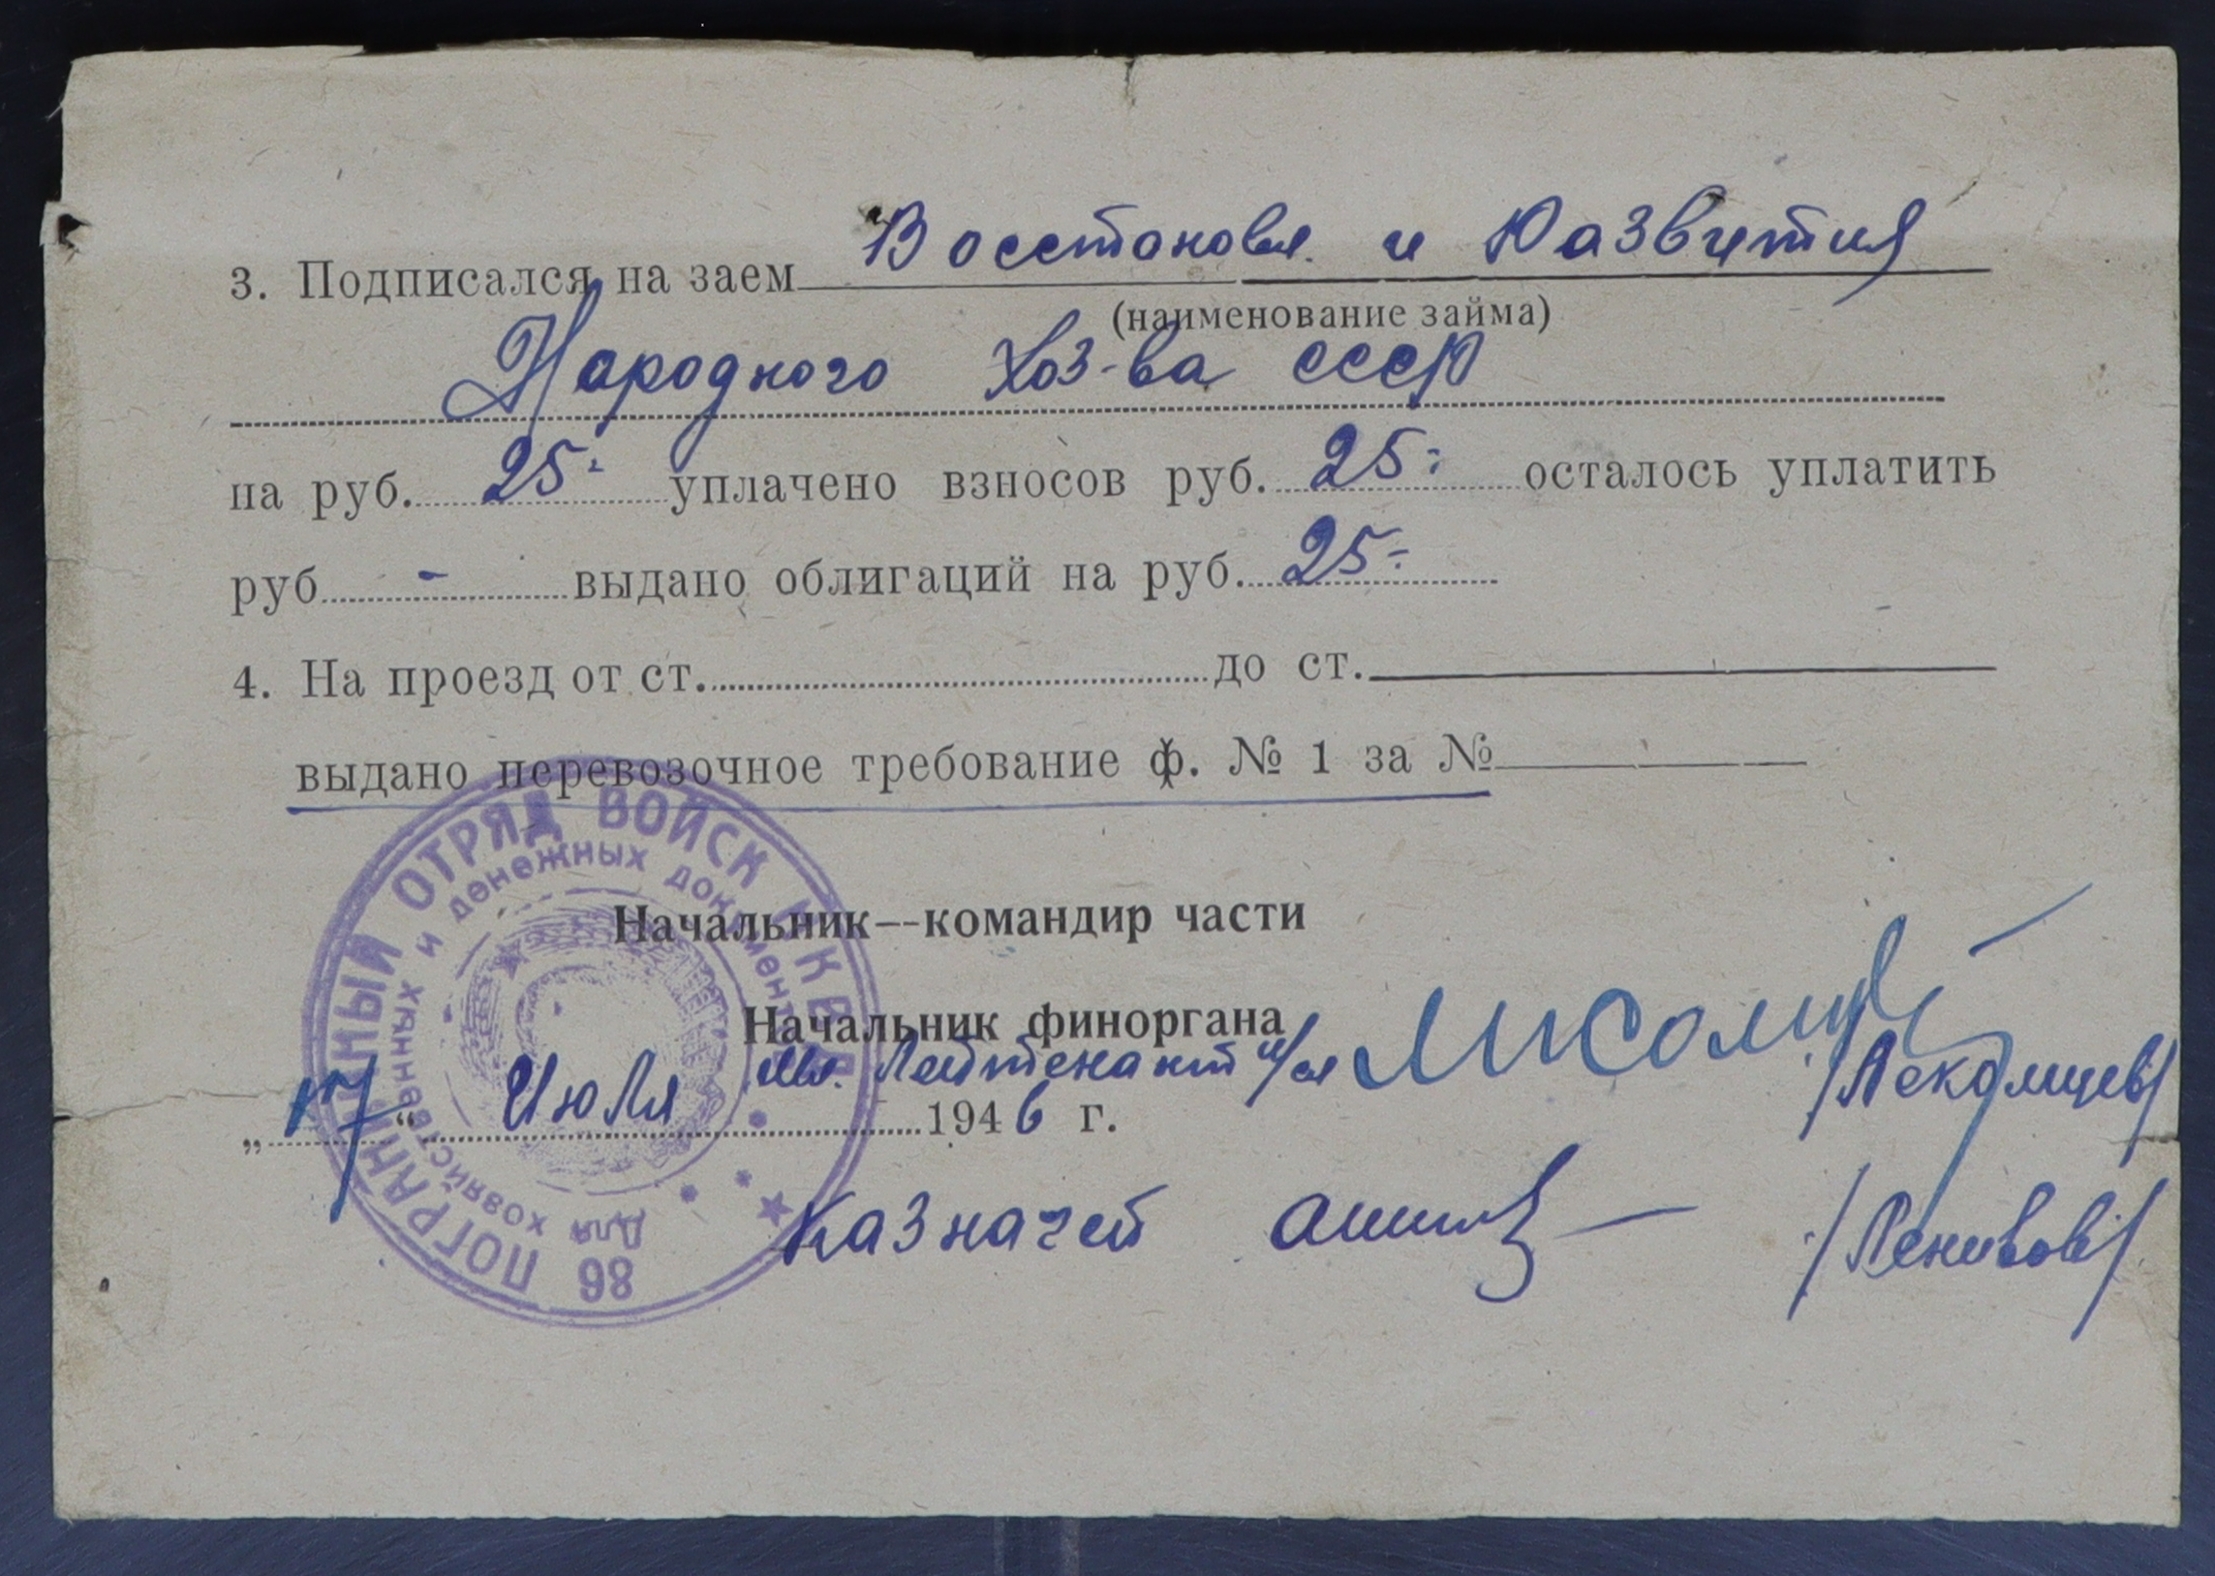 3. Подписался на заем Восстановл. и Развития
(наименование займа)
Народного Хоз-ва СССР
на руб. 25- уплачено взносов руб. 25- осталось уплатить
руб. - выдано облигаций на руб. 25-
4. На проезд от ст. до ст.
выдано перевозочное требование ф. № 1 за №
Начальник—командир части
Начальник финоргана
мл. Лейтенант и/сл /Лекомцев/
„17“ Июля 1946 г.
Казначей /Ленивов/
86 ПОГРАНИЧНЫЙ ОТРЯД ВОЙСК НКВД
Для хозяйственных и денежных документов